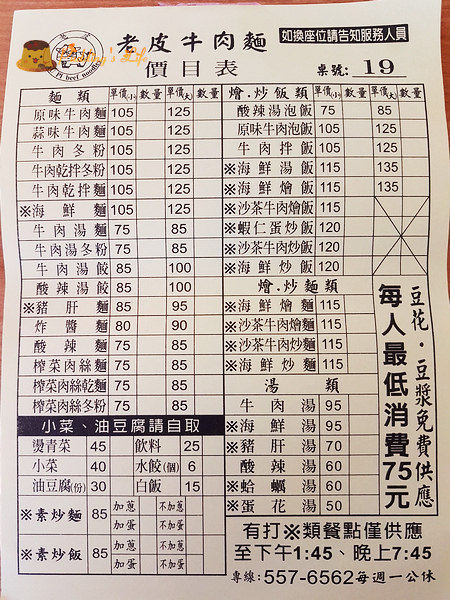 老皮牛肉麵
如換座位請告知服務人員
價目表
桌號: 19
麵類 單價(小) 數量 單價(大) 數量
原味牛肉麵 105 125
蒜味牛肉麵 105 125
牛肉冬粉 105 125
牛肉乾拌冬粉 105 125
牛肉乾拌麵 105 125
※海鮮麵 105 125
牛肉湯麵 75 85
牛肉湯冬粉 75 85
牛肉湯餃 85 100
酸辣湯餃 85 100
※豬肝麵 85 95
炸醬麵 80 90
酸辣麵 75 85
榨菜肉絲麵 75 85
榨菜肉絲乾麵 75 85
榨菜肉絲冬粉 75 85
小菜、油豆腐請自取
燙青菜 45 飲料 25
小菜 40 水餃(個) 6
油豆腐(份) 30 白飯 15
※素炒麵 85 加蔥 不加蔥
加蛋 不加蛋
※素炒飯 85 加蔥 不加蔥
加蛋 不加蛋
燴.炒飯類 單價(小) 數量 單價(大) 數量
酸辣湯泡飯 75 85
原味牛肉泡飯 105 125
牛肉拌飯 105 125
※海鮮湯飯 115 135
※海鮮燴飯 115 135
※沙茶牛肉燴飯 115
※蝦仁蛋炒飯 120
※沙茶牛肉炒飯 120
※海鮮炒飯 120
燴.炒麵類
※海鮮燴麵 115
※沙茶牛肉燴麵 115
※沙茶牛肉炒麵 115
※海鮮炒麵 115
湯類
牛肉湯 95
※海鮮湯 95
※豬肝湯 70
酸辣湯 60
※蛤蠣湯 60
※蛋花湯 50
豆花.豆漿免費供應
每人最低消費75元
有打※類餐點僅供應
至下午1:45、晚上7:45
專線: 557-6562 每週一公休